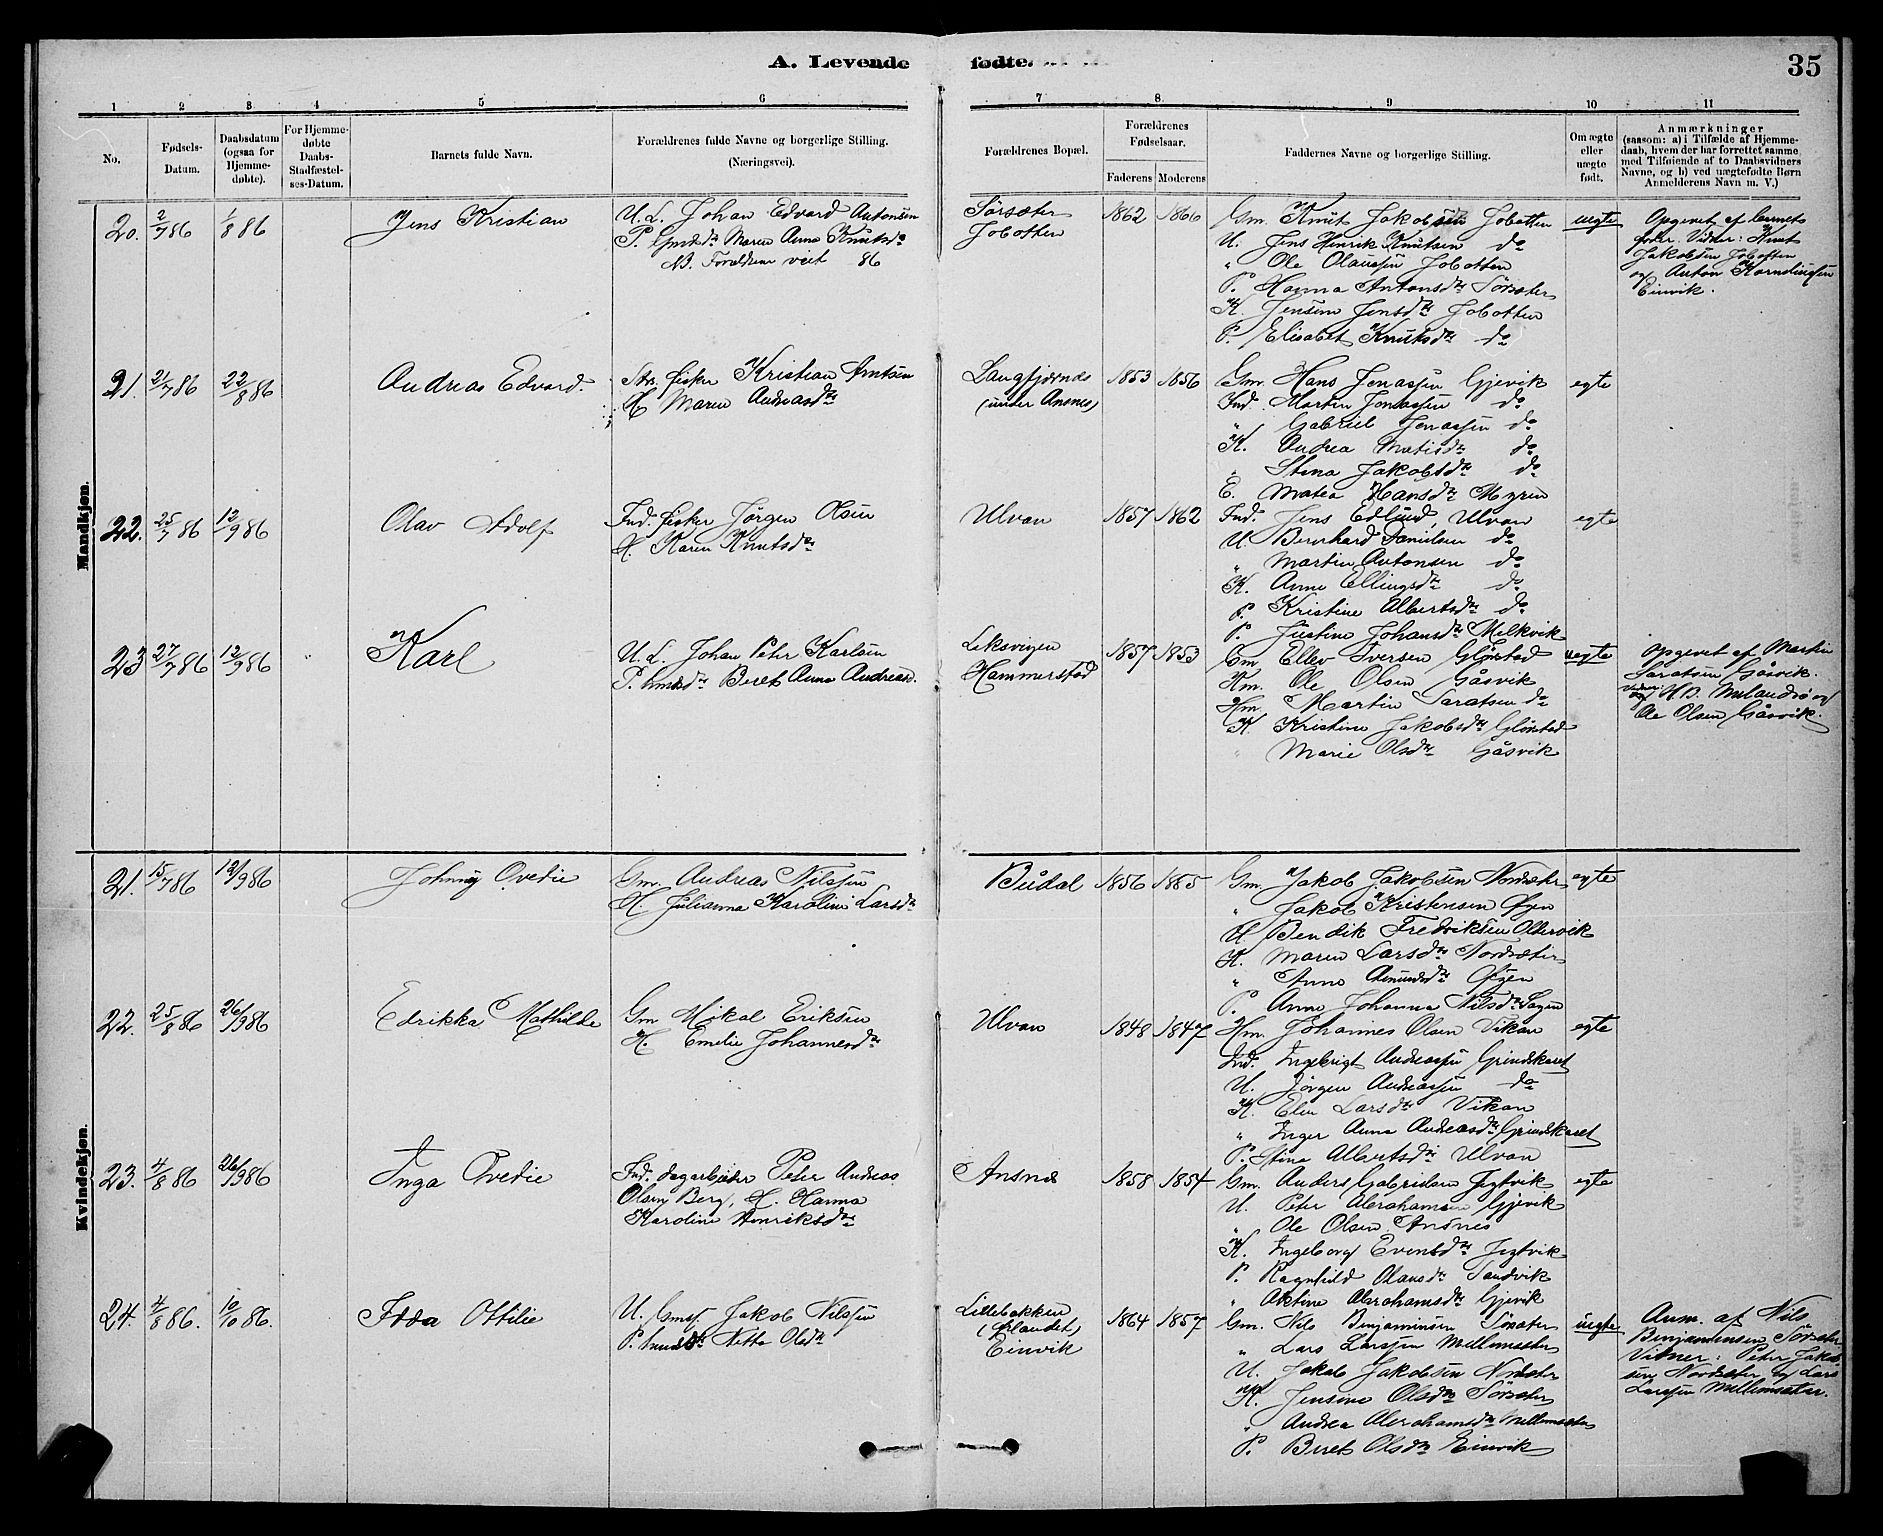 A. Levende fødte.
35
1 2 3 4 5 6 7 8. 9 10 11
No.
Fødsels-
Datum.
Daabsdatum
(ogsaa for
Hjemme-
døbte).
For Hjemme-
døbte
Daabs-
Stadfæstel-
ses-Datum.
Barnets fulde Navn.
Forældrenes fulde Navne og borgerlige Stilling.
(Næringsvei).
Forældrenes Bopæl.
Forældrenes
Fødselsaar.
Faderens Moderens
Faddernes Navne og borgerlige Stilling.
Om ægte
eller
uægte
født.
Anmærkninger
(saasom: a) i Tilfælde af Hjemme-
daab, hvem der har forrettet samme,
med Tilføiende af to Daabsvidners
Navne, og b) ved uægtefødte Børn
Anmelderens Navn m. V.)
Mandkjøn.
20. 2/7 86 1/8 86
Jens Kristian
U. L. Johan Edvard Antonsen
P. Gmdsdr Maren Anna Knutsdr
NB. Forældrene viet 86
Sørsæter
Jobotten
1862 1866
Gm. Knut Jakobsen Jobotten
U. Jens Henrik Knutsen do
" Ole Olaussen Jobotten
P. Hanna Antonsdr Sørsæter
K. Jensine Jensdr Jobotten
P. Elisabet Knutsdr do
uegte
Opgevet af barnets
fader. Vidner: Knut
Jakobsen Jobotten
og Anton Korneliussen
Einvik.
21. 21/7 86 22/8 86
Andreas Edvard.
Str. fisker Kristian Arntsen
H. Maren Andreasdr
Langfjørnes
(under Ansnes)
1853 1856
Gm. Hans Jonassen Gjevik
Ind. Martin Jonassen do
" Gabriel Jonassen do
K. Andrea Matisdr do
" Stina Jakobsdr do
E. Matea Hansdr Myren
egte
22. 25/7 86 12/9 86
Olav Adolf
Ind. fisker Jørgen Olsen
H. Karen Knutsdr
Ulvan
1857 1862
Ind. Jens Edlund, Ulvan
U. Bernhard Danielsen do
" Martin Antonsen do
K. Anne Ellingsdr do
P. Kristine Albertsdr do
P. Justine Johansdr Melkvik
egte
23 27/7 86 12/9 86
Karl
U. L. Johan Peter Karlsen
P. Beret Anna Andreasd.
Leksvigen
Hammerstad
1857 1853
Gm Ellev Iversen Glørstad
Km. Ole Olsen Gåsvik
Hm. Martin Saratsen do
K. Kristine Jakobsdr Glørstad
" Marie Olsdr Gåsvik
uegte
Opgevet af Martin
Saratsen Gåsvik.
Vidner: H. D. Melandsø og
Ole Olsen Gåsvik.
Kvindekjøn.
21. 15/7 86 12/9 86
Johnny Ovedie
Gm. Andreas Nilssen
H. Julianna Karoline Larsdr
Budal
1856 1885
Gm. Jakob Jakobsen Nordsæter
" Jakob Kristensen Øyen
U Bendik Fredriksen Oldervik
K. Maren Larsdr Nordsæter
" Anne Amundsdr Øyen
P. Anne Johanna Nilsdr Sagen
egte
22. 25/8 86 26/9 86
Edrikka Mathilde
Gm Mikal Eriksen
H. Emelie Johannesdr
Ulvan
1848 1847
Hm. Johannes Olsen Vikan
Ind. Ingebrigt Andreassen Grindskaret
U. Jørgen Andreassen do
K. Elen Larsdr Vikan
" Inger Anna Andreasdr Grindskaret
P. Stina Albertsdr Ulvan
egte
23. 4/8 86 26/9 86
Inga Ovedie
Ind. dagarbeider Peter Andreas
Olsen Berg, H. Hanna
Karoline Henriksdr
Ansnes
1858 1854
Gm. Anders Gabrielsen Jegtvik
U. Peter Abrahamsen Gjevik
" Ole Olsen Ansnes
K. Ingeborg Evensdr Jegtvik
P. Ragnhild Olausdr Sandvik
" Aktine Abrahamsdr Gjevik
egte
24. 4/8 86. 10/10 86.
Ida Ottilie
U. Gmsf. Jakob Nilssen
P. Netta Olsdr
Lillebakken
Einvik
1864 1857
Gm. Nils Benjaminsen Sørsæter
" Lars Larssen Mellemsæter
U. Jakob Jakobsen Nordsæter
K. Jensine Olsdr Sørsæter
" Andrea Abrahamsdr Mellemsæter
P. Beret Olsdr Einvik
uegte
Anm. af Nils
Benjaminsen Sørsæter
Vidner: Peter Jakob-
sen Nordsæter og Lars
Larssen Mellemsæter.